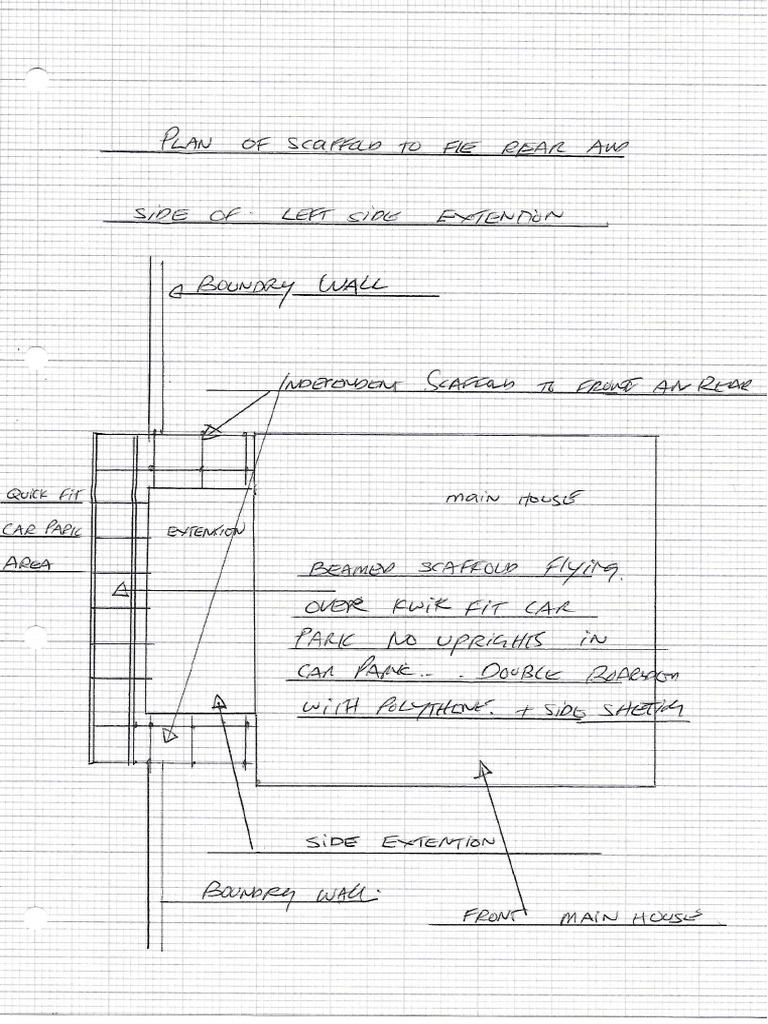 PLAN OF SCAFFOLD TO THE REAR AND
SIDE OF LEFT SIDE EXTENTION
BOUNDRY WALL
INDEPENDENT SCAFFOLD TO FRONT AN REAR
QUICK FIT
CAR PARK
AREA
EXTENSION
MAIN HOUSE
BEAMED SCAFFOLD FLYING
OVER KWIK FIT CAR
PARK NO UPRIGHTS IN
CAR PARK... DOUBLE BOARDED
WITH POLYTHENE. + SIDE SHETING
SIDE EXTENTION
BOUNDRY WALL.
FRONT MAIN HOUSE